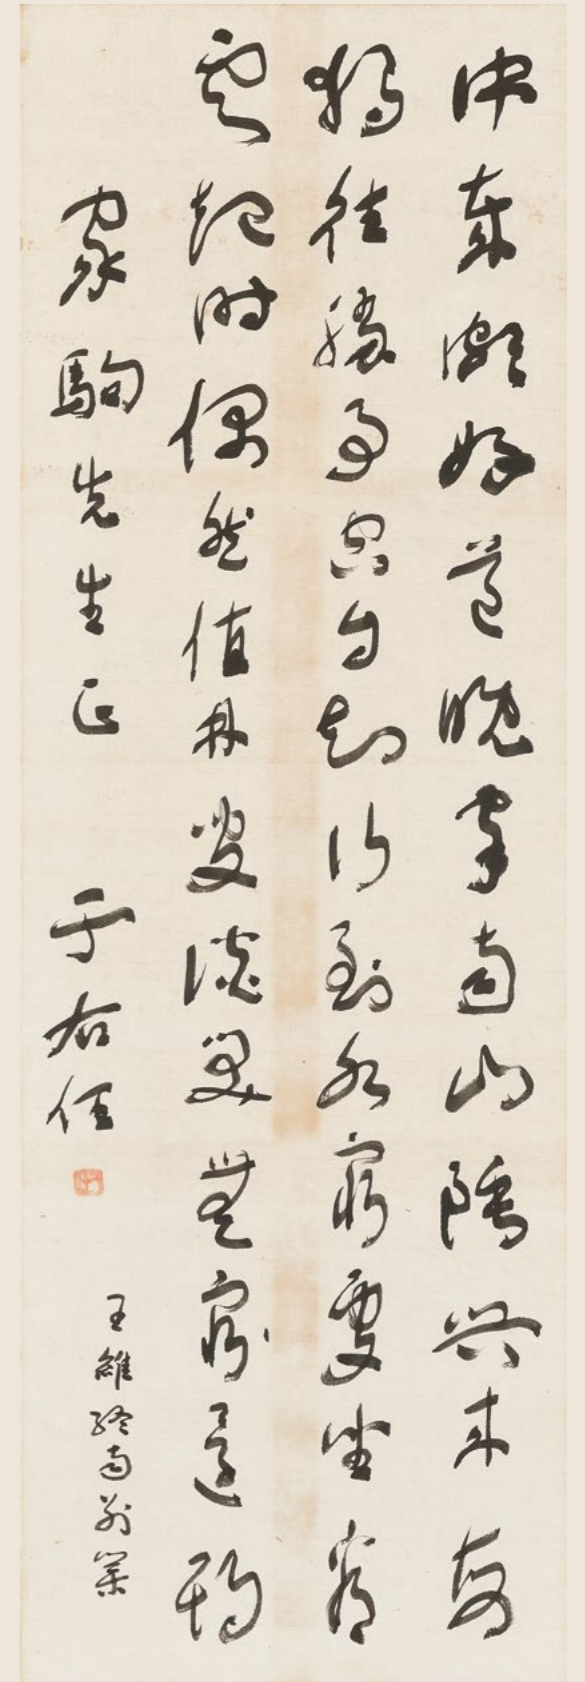 中歲頗好道晚家南山陲興來每
獨往勝事空自知行到水窮處坐看
雲起時偶然值林叟談笑無窮還期
家駒先生正
于右任
王維終南別業